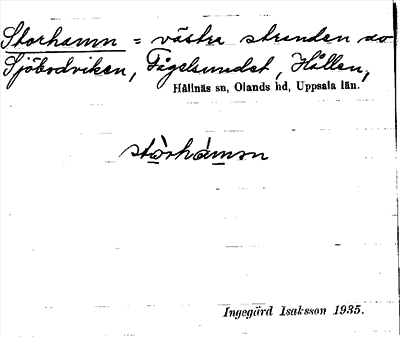 Storhamn = västra stranden av
Sjöbodviken, Fågelsundet, Hållen,
Hållnäs sn, Olands hd, Uppsala län.
stòrhámnn
Ingegärd Isaksson 1935.